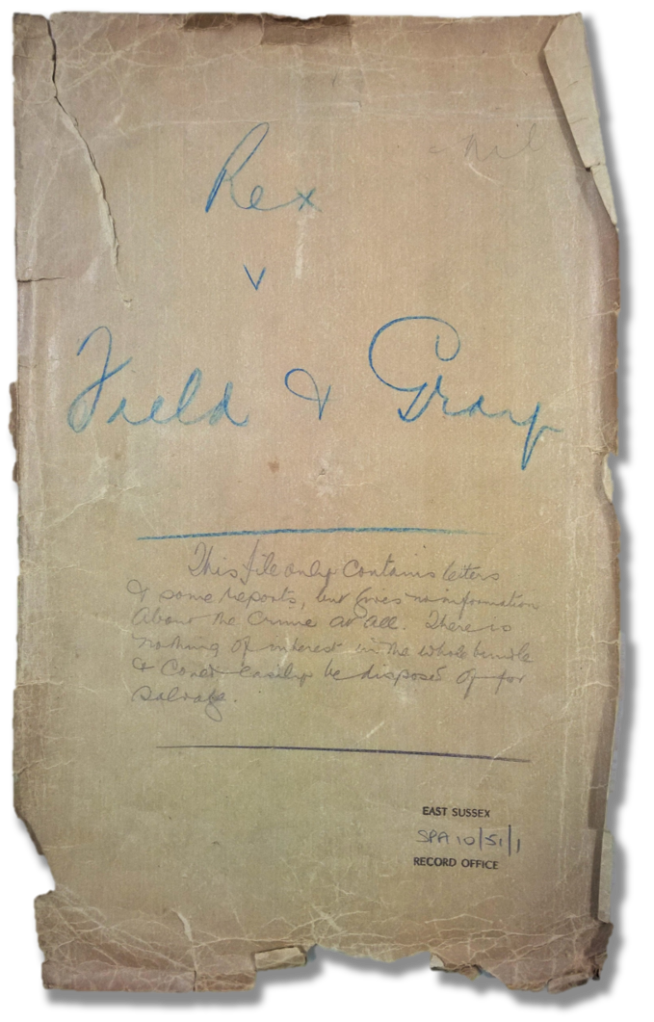 Rex
v
Field & Gray
This file only contains letters
& some reports, but gives no information
about the crime at all. There is
nothing of interest in the whole bundle
& could easily be disposed of for
salvage.
EAST SUSSEX
SPA 10/51/1
RECORD OFFICE